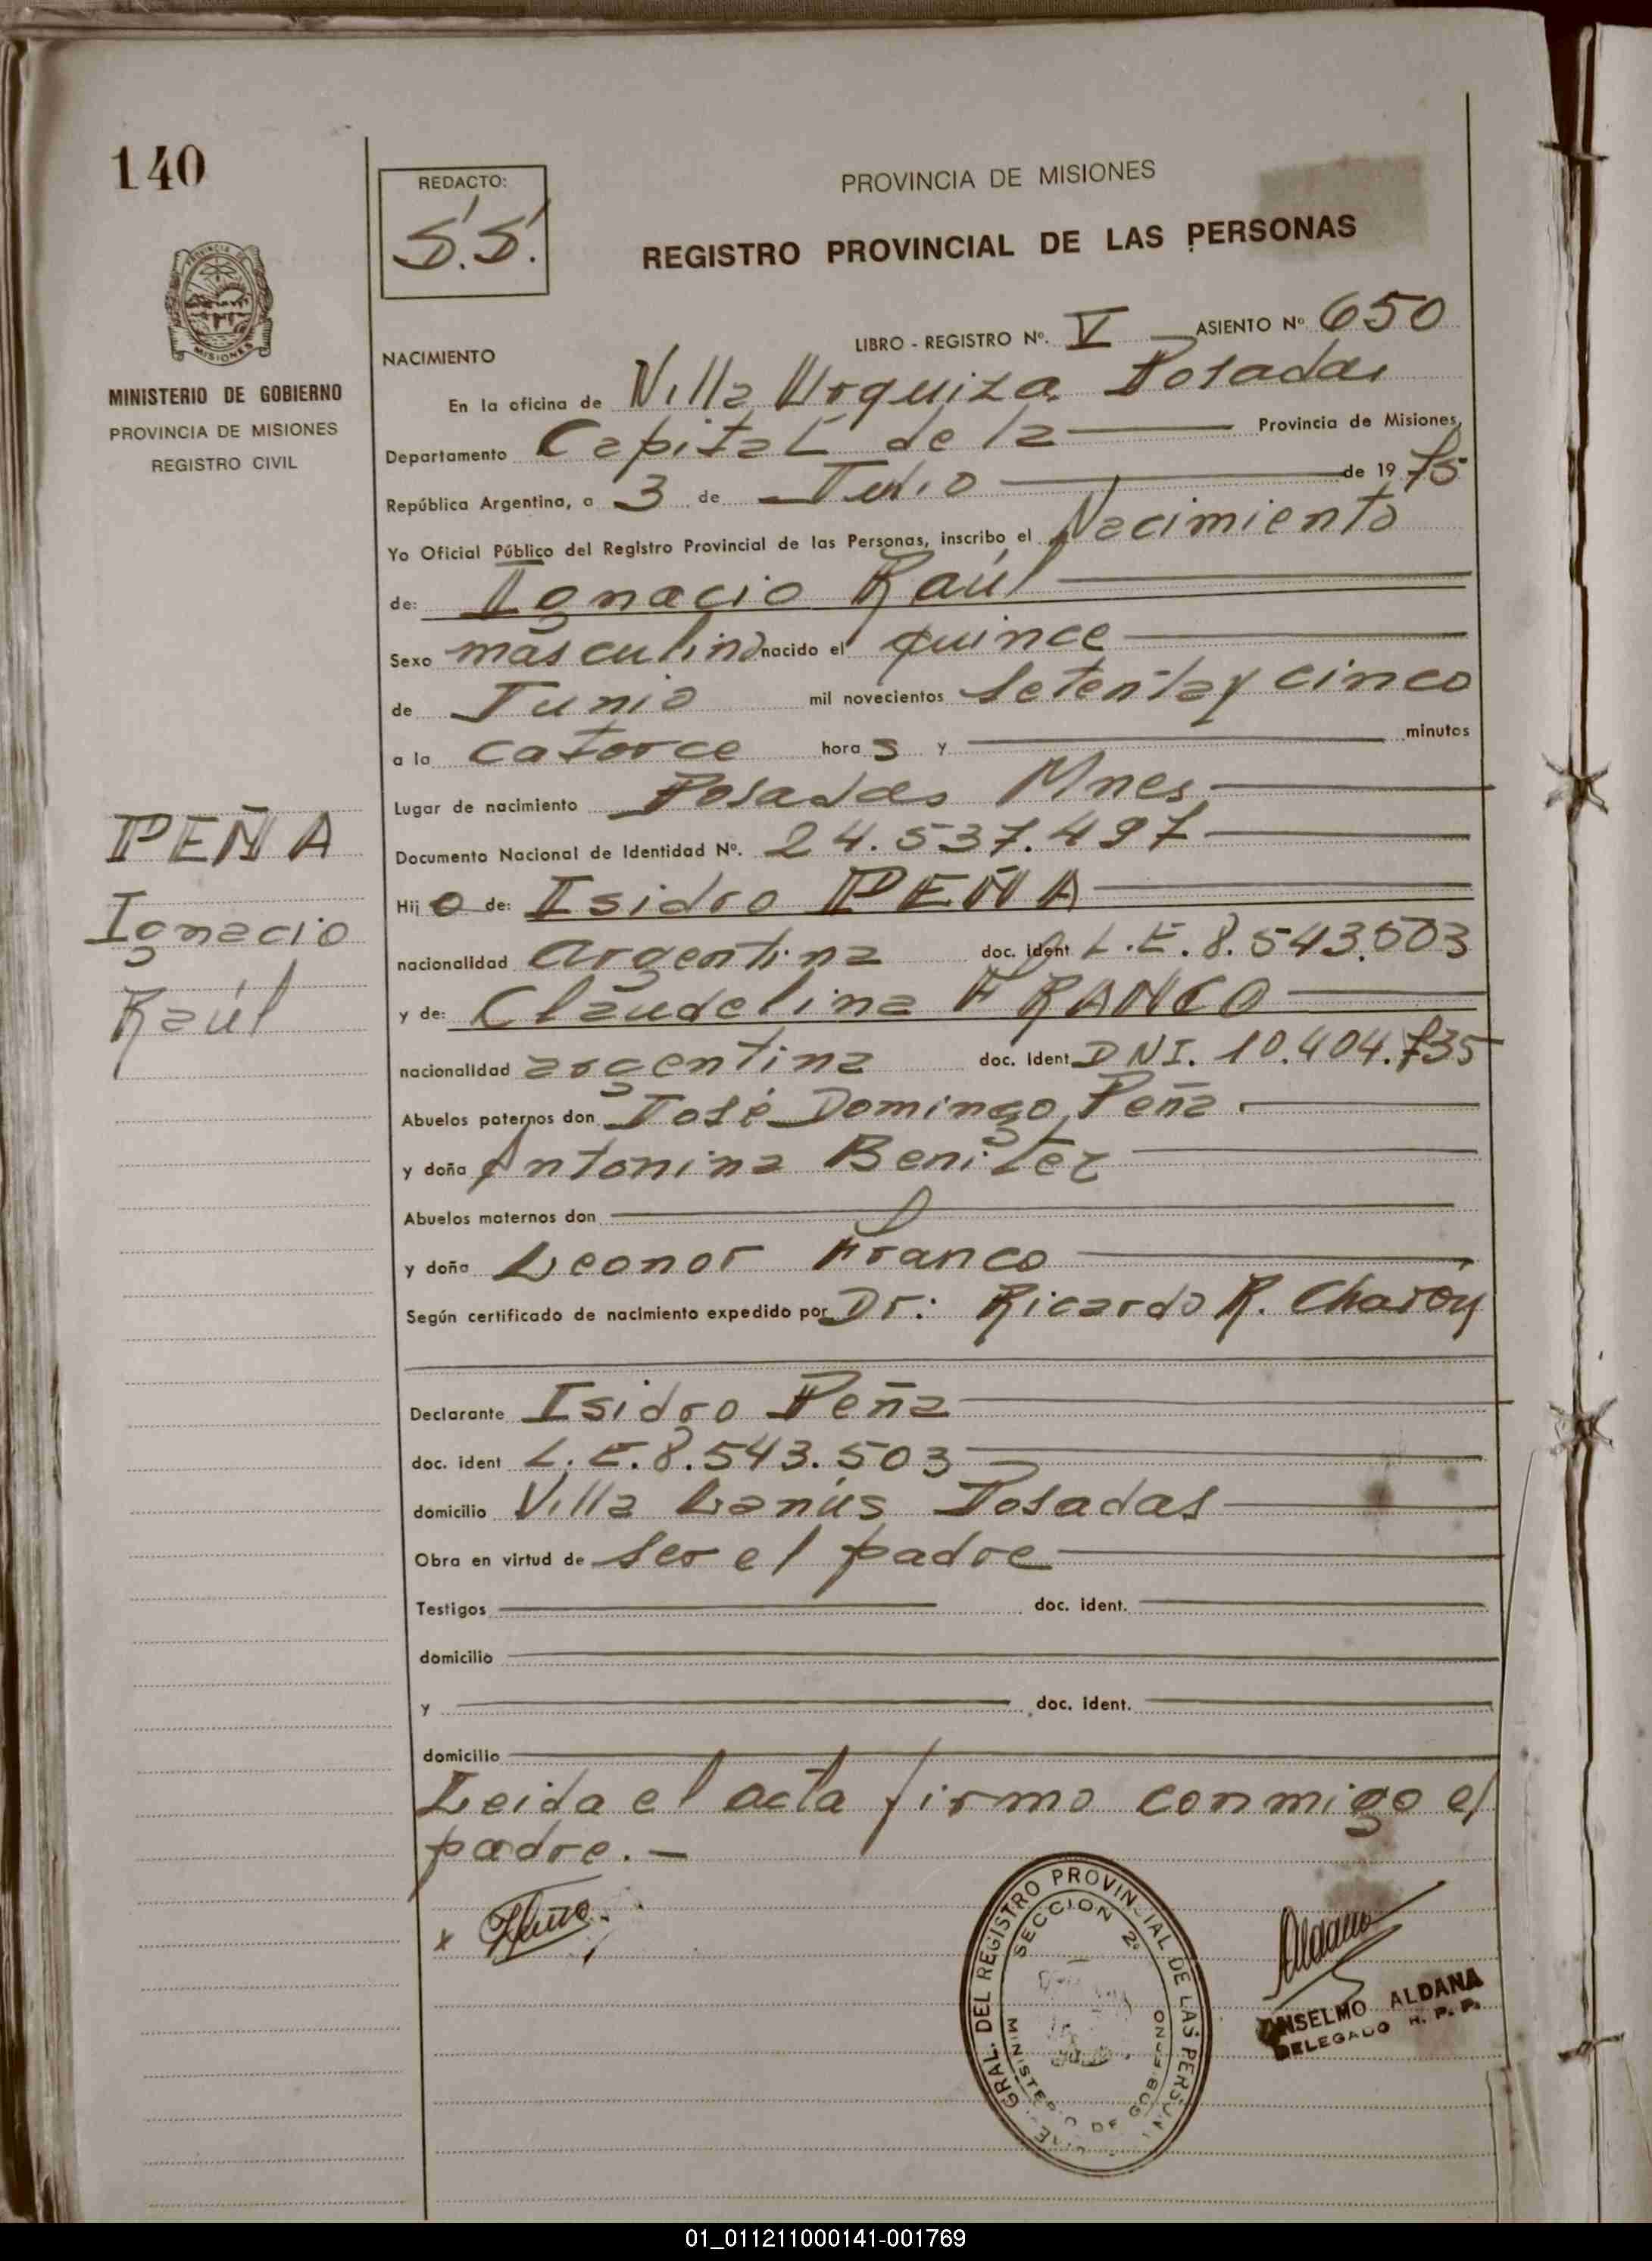 140
REDACTO:
S.S.
PROVINCIA DE MISIONES
REGISTRO PROVINCIAL DE LAS PERSONAS
PROVINCIA
MISIONES
MINISTERIO DE GOBIERNO
PROVINCIA DE MISIONES
REGISTRO CIVIL
LIBRO - REGISTRO Nº. V ASIENTO Nº 650
NACIMIENTO
En la oficina de Villa Urquiza. Posadas
Departamento Capital de la Provincia de Misiones,
República Argentina, a 3 de Julio de 1975
Yo Oficial Público del Registro Provincial de las Personas, inscribo el Nacimiento
de: Ignacio Raúl
Sexo masculino nacido el quince
de Junio mil novecientos setenta y cinco
a la catorce horas y minutos
Lugar de nacimiento Posadas Mnes.
Documento Nacional de Identidad Nº. 24.537.497
Hijo de: Isidro PEÑA
nacionalidad argentina doc. ident L.E. 8.543.503
y de: Claudelina FRANCO
nacionalidad argentina doc. Ident DNI. 10.404.735
Abuelos paternos don José Domingo Peña
y doña Antonina Benitez
Abuelos maternos don
y doña Leonor Franco
Según certificado de nacimiento expedido por Dr: Ricardo R.
Declarante Isidro Peña
doc. ident L.E. 8.543.503
domicilio Villa Lanús Posadas
Obra en virtud de ser el padre
Testigos doc. ident.
domicilio
y doc. ident.
domicilio
Leida el acta firmo conmigo el
padre.-
PEÑA
Ignacio
Raúl
x Peña
GRAL. DEL REGISTRO PROVINCIAL DE LAS PERSONAS
SECCION 2º
MINISTERIO DE GOBIERNO
Aldana
ANSELMO ALDANA
DELEGADO R. P. P.
01_011211000141-001769